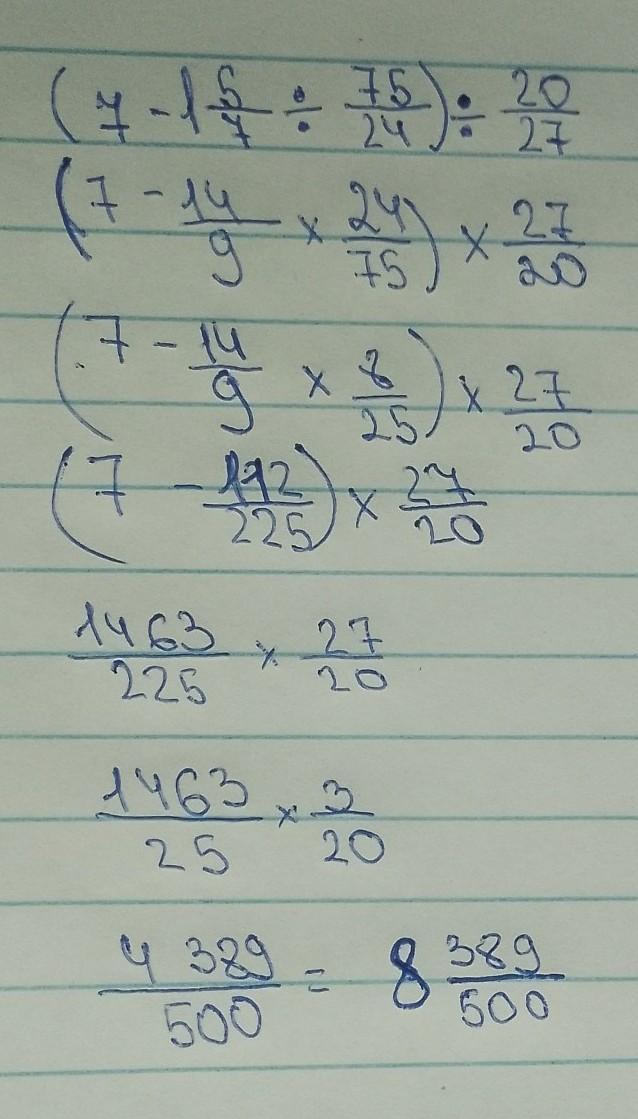 (7 - 1 5/7 ÷ 75/24) ÷ 20/27
(7 - 14/9 × 24/75) × 27/20
(7 - 14/9 × 8/25) × 27/20
(7 - 112/225) × 27/20
1463/225 × 27/20
1463/25 × 3/20
4 389/500 = 8 389/500